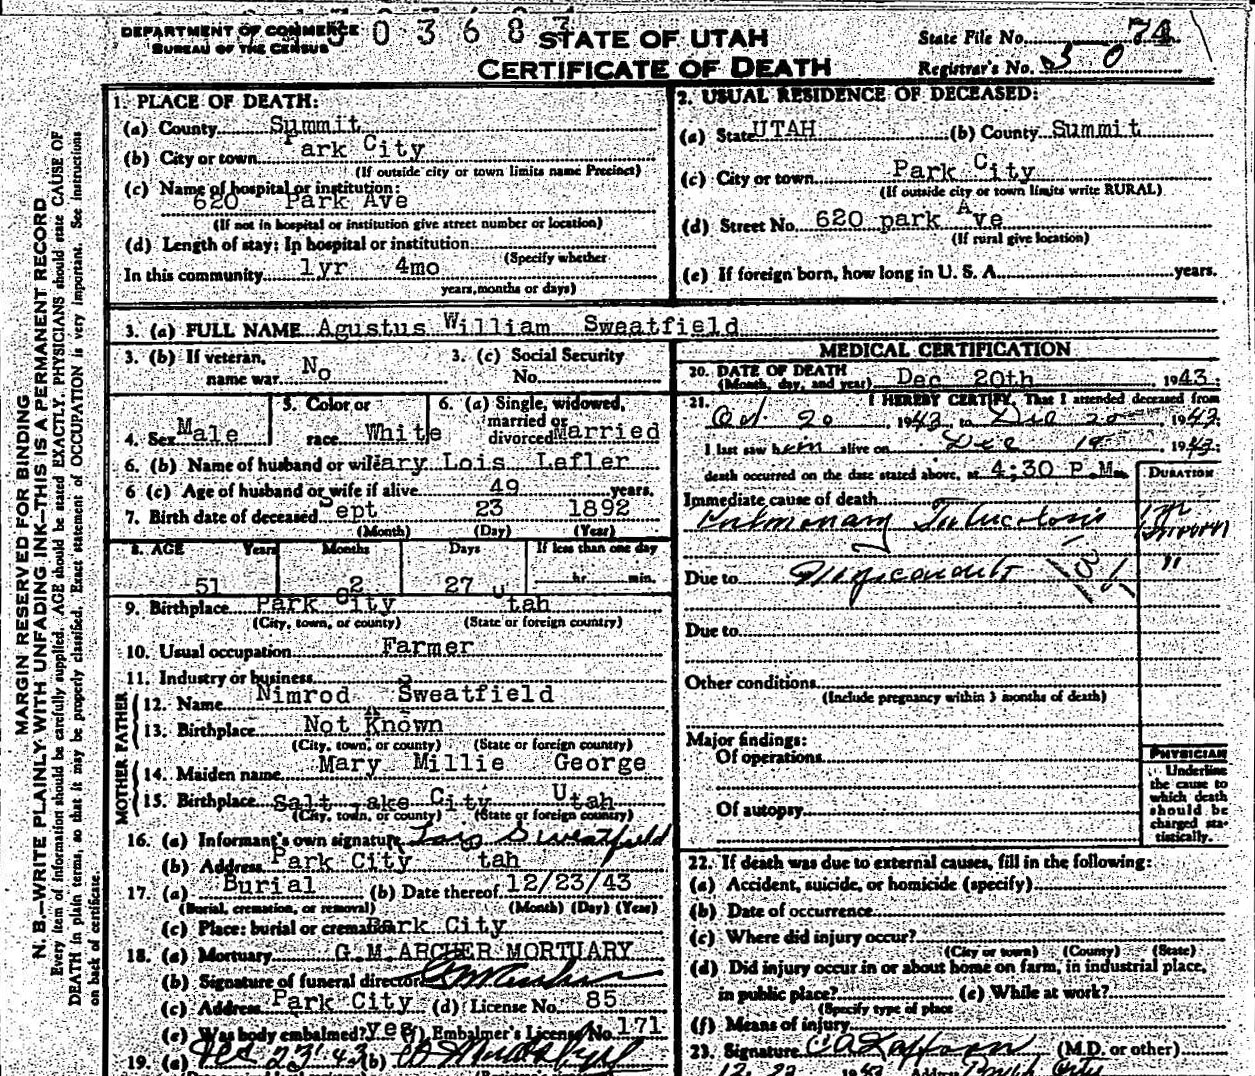 DEPARTMENT OF COMMERCE
BUREAU OF THE CENSUS
3 0 3 6 8 7
STATE OF UTAH
CERTIFICATE OF DEATH
State File No. 74
Registrar's No. 30
MARGIN RESERVED FOR BINDING
N. B.—WRITE PLAINLY WITH UNFADING INK—THIS IS A PERMANENT RECORD
Every item of information should be carefully supplied. AGE should be stated EXACTLY. PHYSICIANS should state CAUSE OF
DEATH in plain terms, so that it may be properly classified. Exact statement of OCCUPATION is very important. See instructions
on back of certificate.
1. PLACE OF DEATH:
(a) County Summit
(b) City or town Park City
(If outside city or town limits name Precinct)
(c) Name of hospital or institution:
620 Park Ave
(If not in hospital or institution give street number or location)
(d) Length of stay: In hospital or institution
(Specify whether
In this community 1yr 4mo
years, months or days)
2. USUAL RESIDENCE OF DECEASED:
(a) State UTAH (b) County Summit
(c) City or town Park City
(If outside city or town limits write RURAL)
(d) Street No. 620 park Ave
(If rural give location)
(e) If foreign born, how long in U. S. A. years.
3. (a) FULL NAME Agustus William Sweatfield
3. (b) If veteran, name war No
3. (c) Social Security No.
4. Sex Male
5. Color or race White
6. (a) Single, widowed, married or divorced Married
6. (b) Name of husband or wife Mary Lois Lefler
6 (c) Age of husband or wife if alive 49 years.
7. Birth date of deceased Sept 23 1892
(Month) (Day) (Year)
8. AGE Years Months Days If less than one day
51 2 27 hr. min.
9. Birthplace Park City Utah
(City, town, or county) (State or foreign country)
10. Usual occupation Farmer
11. Industry or business
FATHER
12. Name Nimrod Sweatfield
13. Birthplace Not Known
(City, town, or county) (State or foreign country)
MOTHER
14. Maiden name Mary Millie George
15. Birthplace Salt Lake City Utah
(City, town, or county) (State or foreign country)
16. (a) Informant's own signature Lois Sweatfield
(b) Address Park City tah
17. (a) Burial (b) Date thereof 12/23/43
(Burial, cremation, or removal) (Month) (Day) (Year)
(c) Place: burial or cremation Park City
18. (a) Mortuary G.M.ARCHER MORTUARY
(b) Signature of funeral director GM Archer
(c) Address Park City (d) License No. 85
(e) Was body embalmed? yes (f) Embalmer's License No. 171
19. (a) Dec 23 43 (b)
MEDICAL CERTIFICATION
20. DATE OF DEATH
(Month, day, and year) Dec 20th , 1943;
21. I HEREBY CERTIFY, That I attended deceased from
Oct 20 , 1943, to Dec 20 , 1943;
I last saw him alive on Dec 19 , 1943;
death occurred on the date stated above, at 4;30 P.M.
DURATION
Immediate cause of death
Pulmonary Tuberculosis 1 yr
Due to "
Due to
Other conditions
(Include pregnancy within 3 months of death)
Major findings:
Of operations
Of autopsy
PHYSICIAN
Underline
the cause to
which death
should be
charged sta-
tistically.
22. If death was due to external causes, fill in the following:
(a) Accident, suicide, or homicide (specify)
(b) Date of occurrence
(c) Where did injury occur?
(City or town) (County) (State)
(d) Did injury occur in or about home on farm, in industrial place,
in public place? (e) While at work?
(Specify type of place
(f) Means of injury
23. Signature (M.D. or other)
12 22 1943 Address Park City